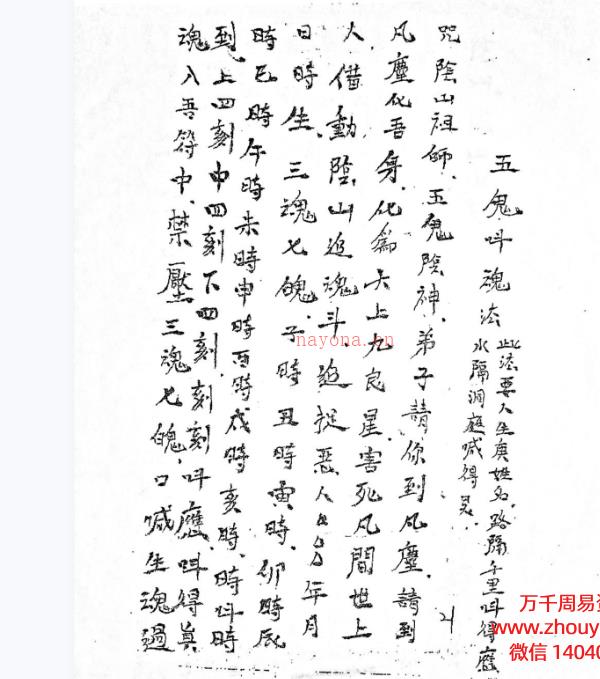 五鬼叫魂法
此法要人生庚姓名、路隔千里叫得應
水隔洞庭喊得灵.
咒陰山祖師、五鬼陰神、弟子請你到凡塵、請到
凡塵化吾身、化為天上九良星、害死凡間世上
人、借動陰山追魂斗、追捉惡人年月
日時生、三魂七魄、子時丑時寅時、卯時辰
時巳時午時未時申時酉時戌時亥時、時叫時
到上四刻中四刻下四刻、刻刻叫應、叫得真
魂入吾符中、禁壓三魂七魄、口喊生魂過
nayona.cn
万千周易资
www.zhouy
微信 14040